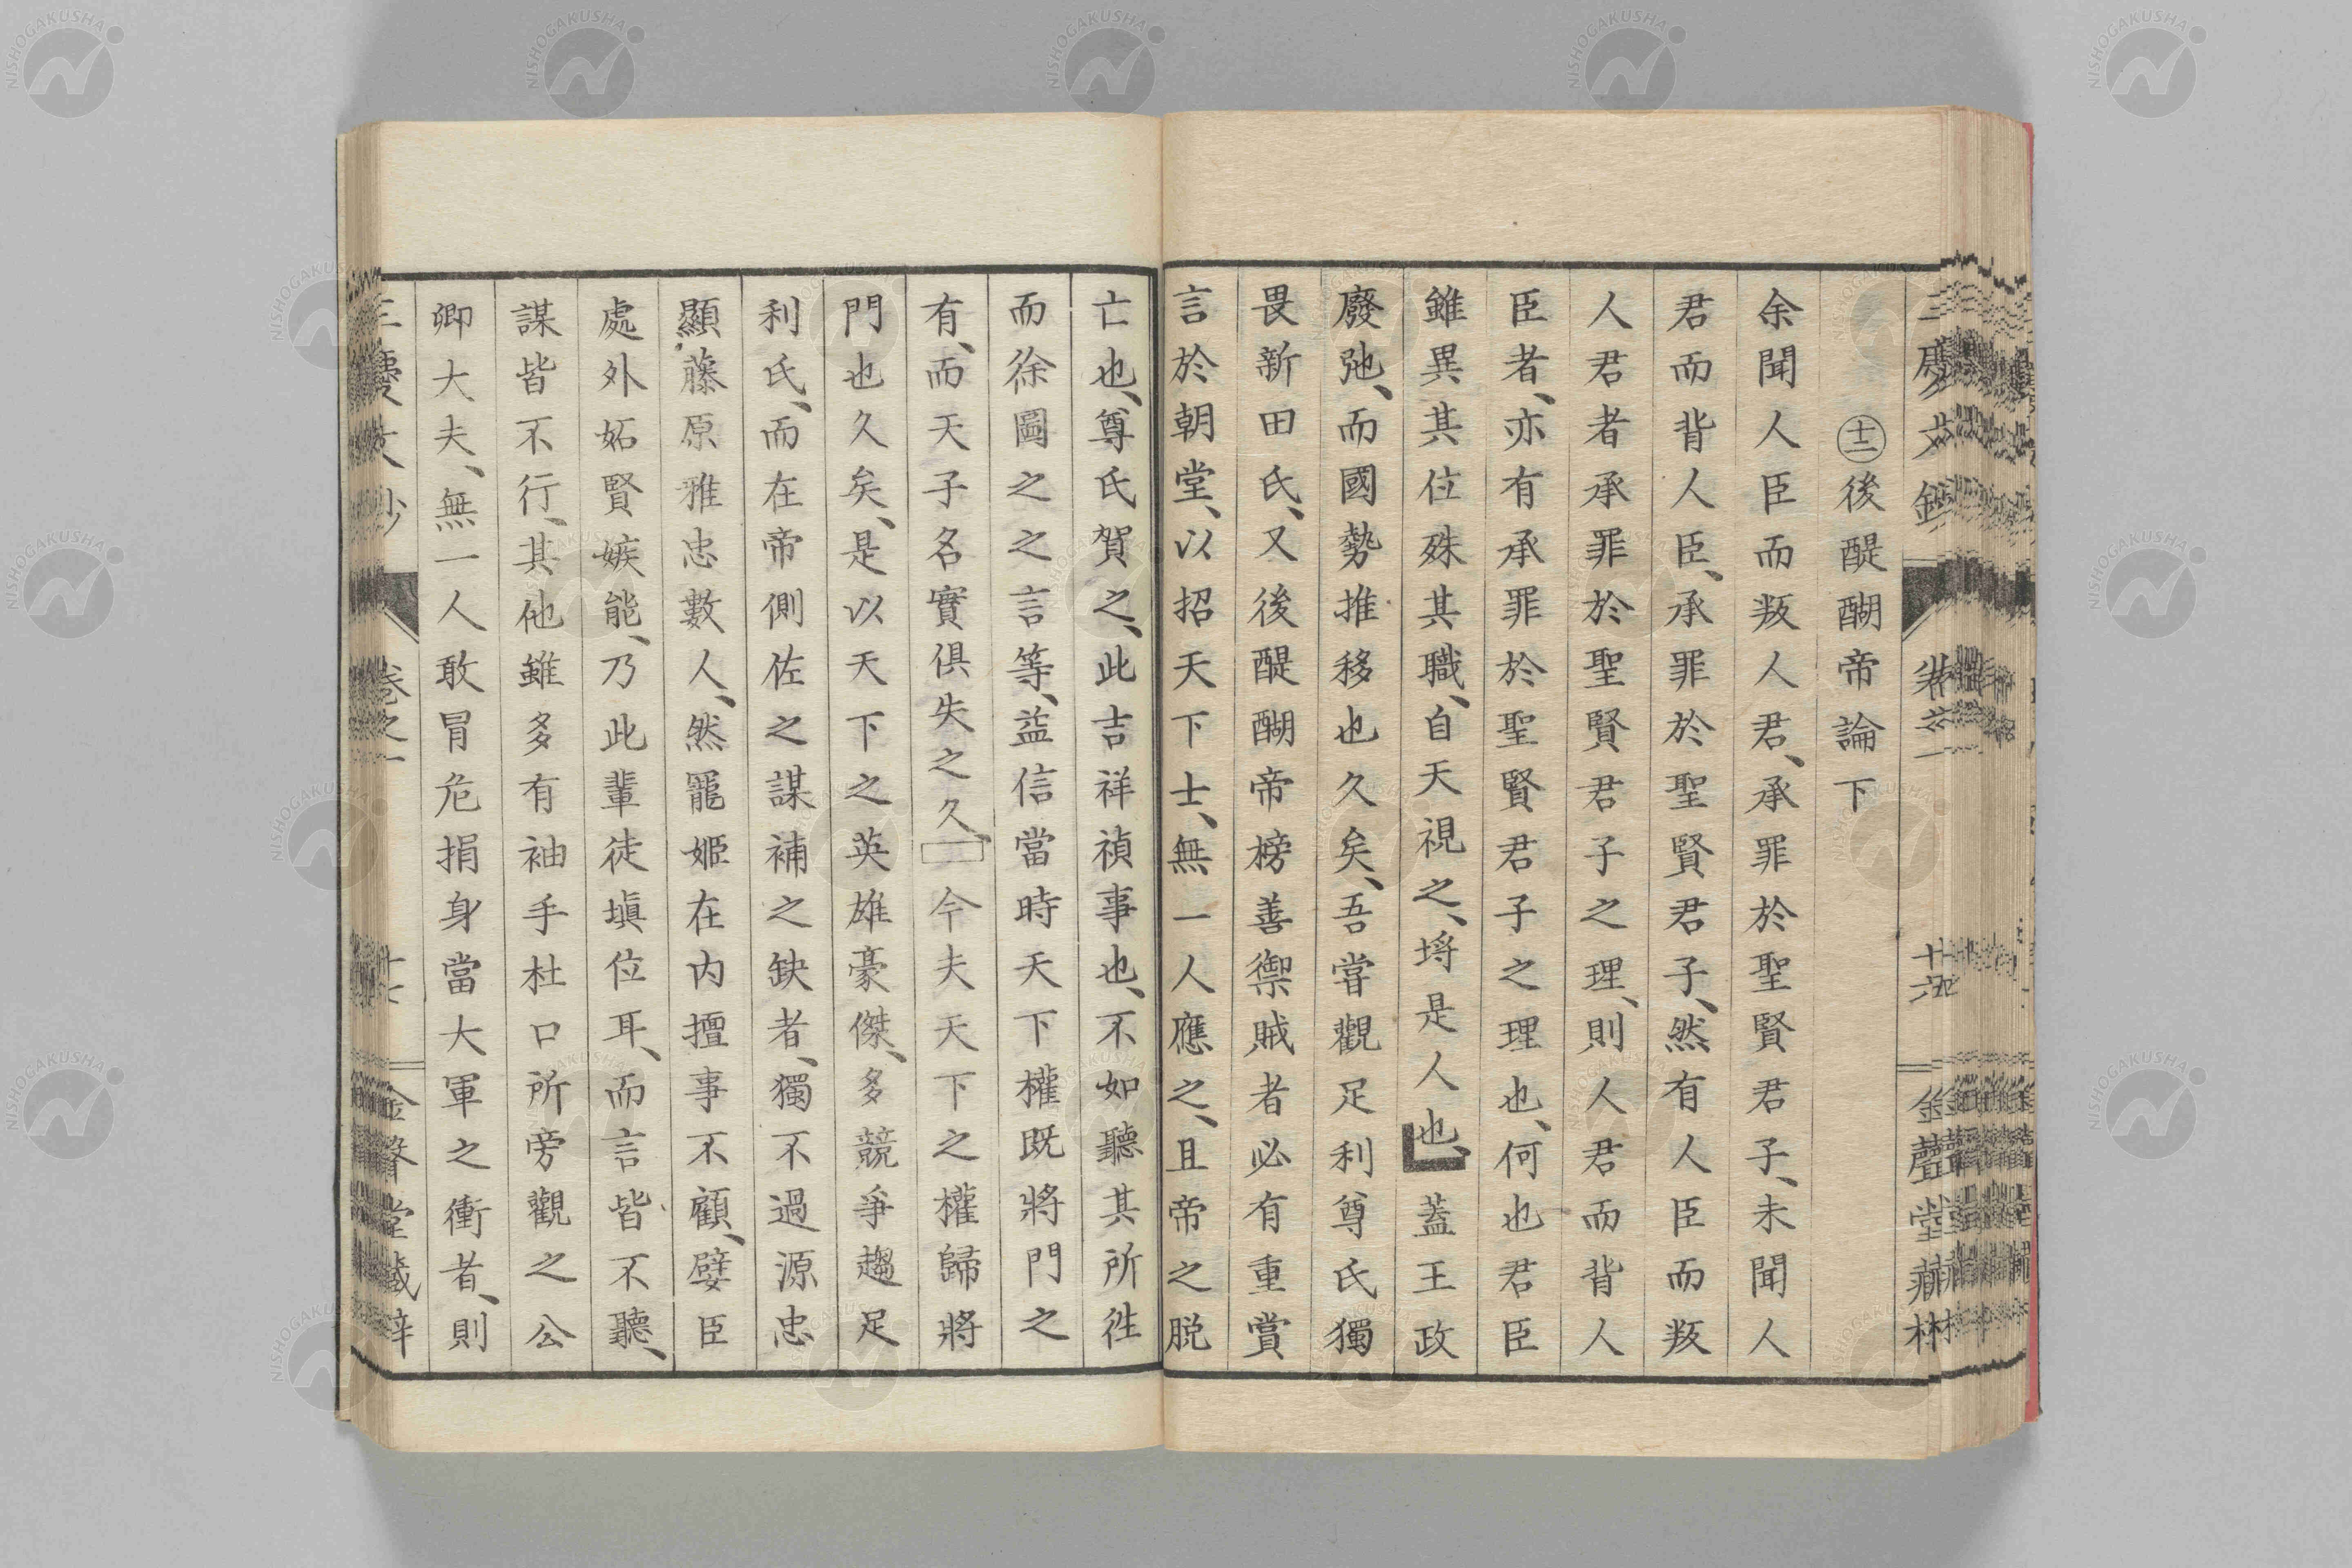 ㊁後醍醐帝論下
余聞人臣而叛人君、承罪於聖賢君子、未聞人
君而背人臣、承罪於聖賢君子、然有人臣而叛
人君者承罪於聖賢君子之理、則人君而背人
臣者、亦有承罪於聖賢君子之理也、何也君臣
雖異其位殊其職、自天視之、均是人也、蓋王政
廢弛、而國勢推移也久矣、吾嘗觀足利尊氏獨
畏新田氏、又後醍醐帝榜善禦賊者必有重賞
言於朝堂、以招天下士、無一人應之、且帝之脱
亡也、尊氏賀之、此吉祥禎事也、不如聽其所徃
而徐圖之之言等、益信當時天下權既將門之
有、而天子名實俱失之久、今夫天下之權歸將
門也久矣、是以天下之英雄豪傑、多競爭趨足
利氏、而在帝側佐之謀補之缺者、獨不過源忠
顯、藤原雅忠數人、然寵姬在内擅事不顧、嬖臣
處外妬賢嫉能、乃此輩徒塡位耳、而言皆不聽、
謀皆不行、其他雖多有袖手杜口所旁觀之公
卿大夫、無一人敢冒危捐身當大軍之衝者、則
金聲堂藏梓
NISHOGAKUSHA